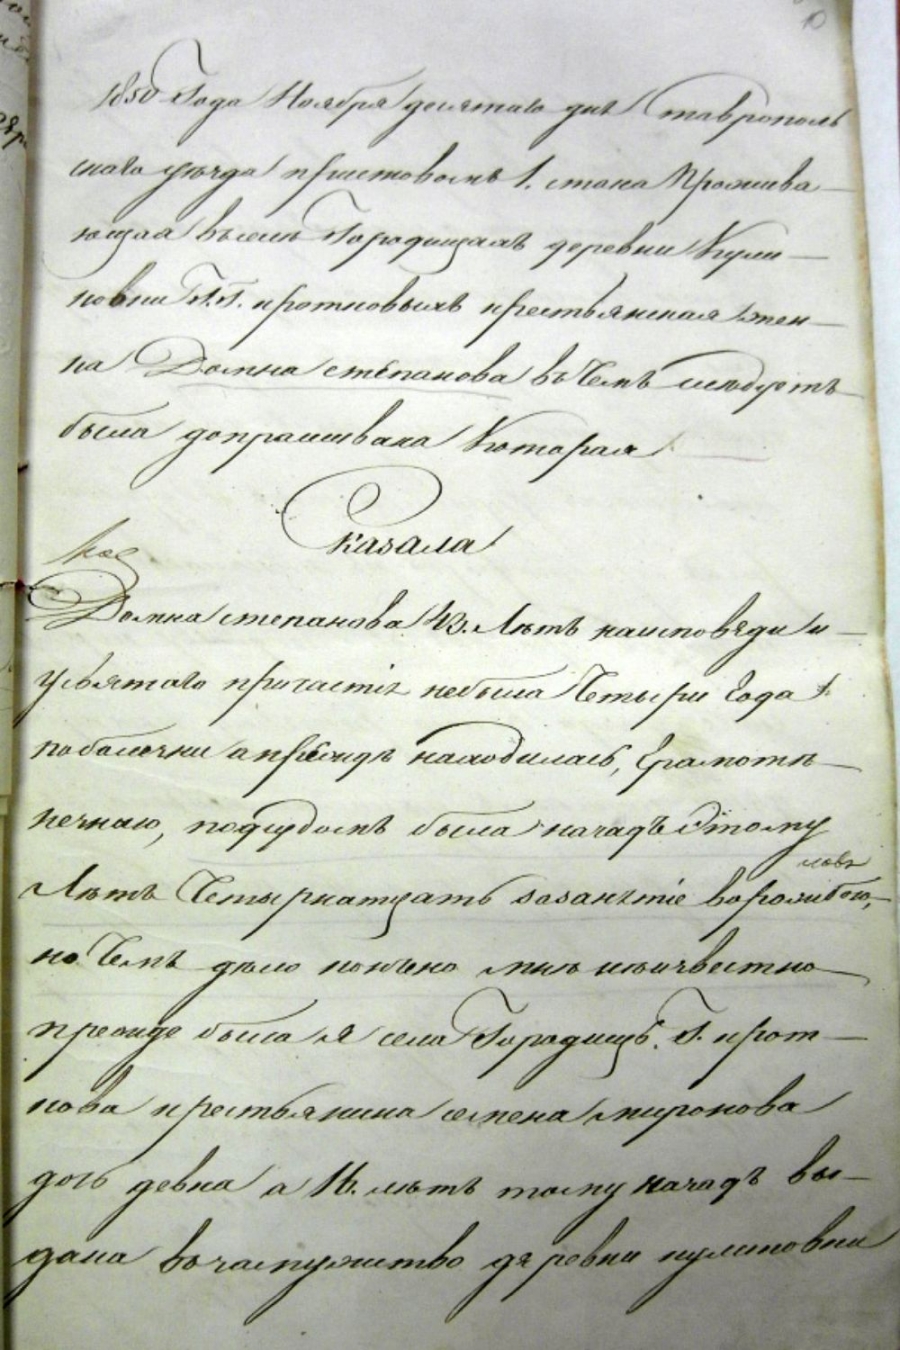 10
1850 Года Ноября десятого дня Ставрополь
скаго уезда приставомъ 1. стана Прожива–
ющая въ селе Городищахъ деревни Кули–
ковки Г.Г. кротковыхъ крестьянская жен–
ка Домна степанова въ чемъ следуетъ
была допрашивана Которая
Сказала
Домна степанова 43. Летъ наисповеди и
усвятаго причастія небыла Четыри Года
поболечни апрежде находилась, Грамоте
незнаю, подсудомъ была назадъ Этому
Летъ Четырнатцать зазанятіе ворожбою,
но Чемъ дело кончено мне неизвестно
прежде была я села Городищь. Г. крот–
кова крестьянина семена миронова
дочь девка а 16. летъ тому назадъ вы–
дана въ замужство деревни куликовки